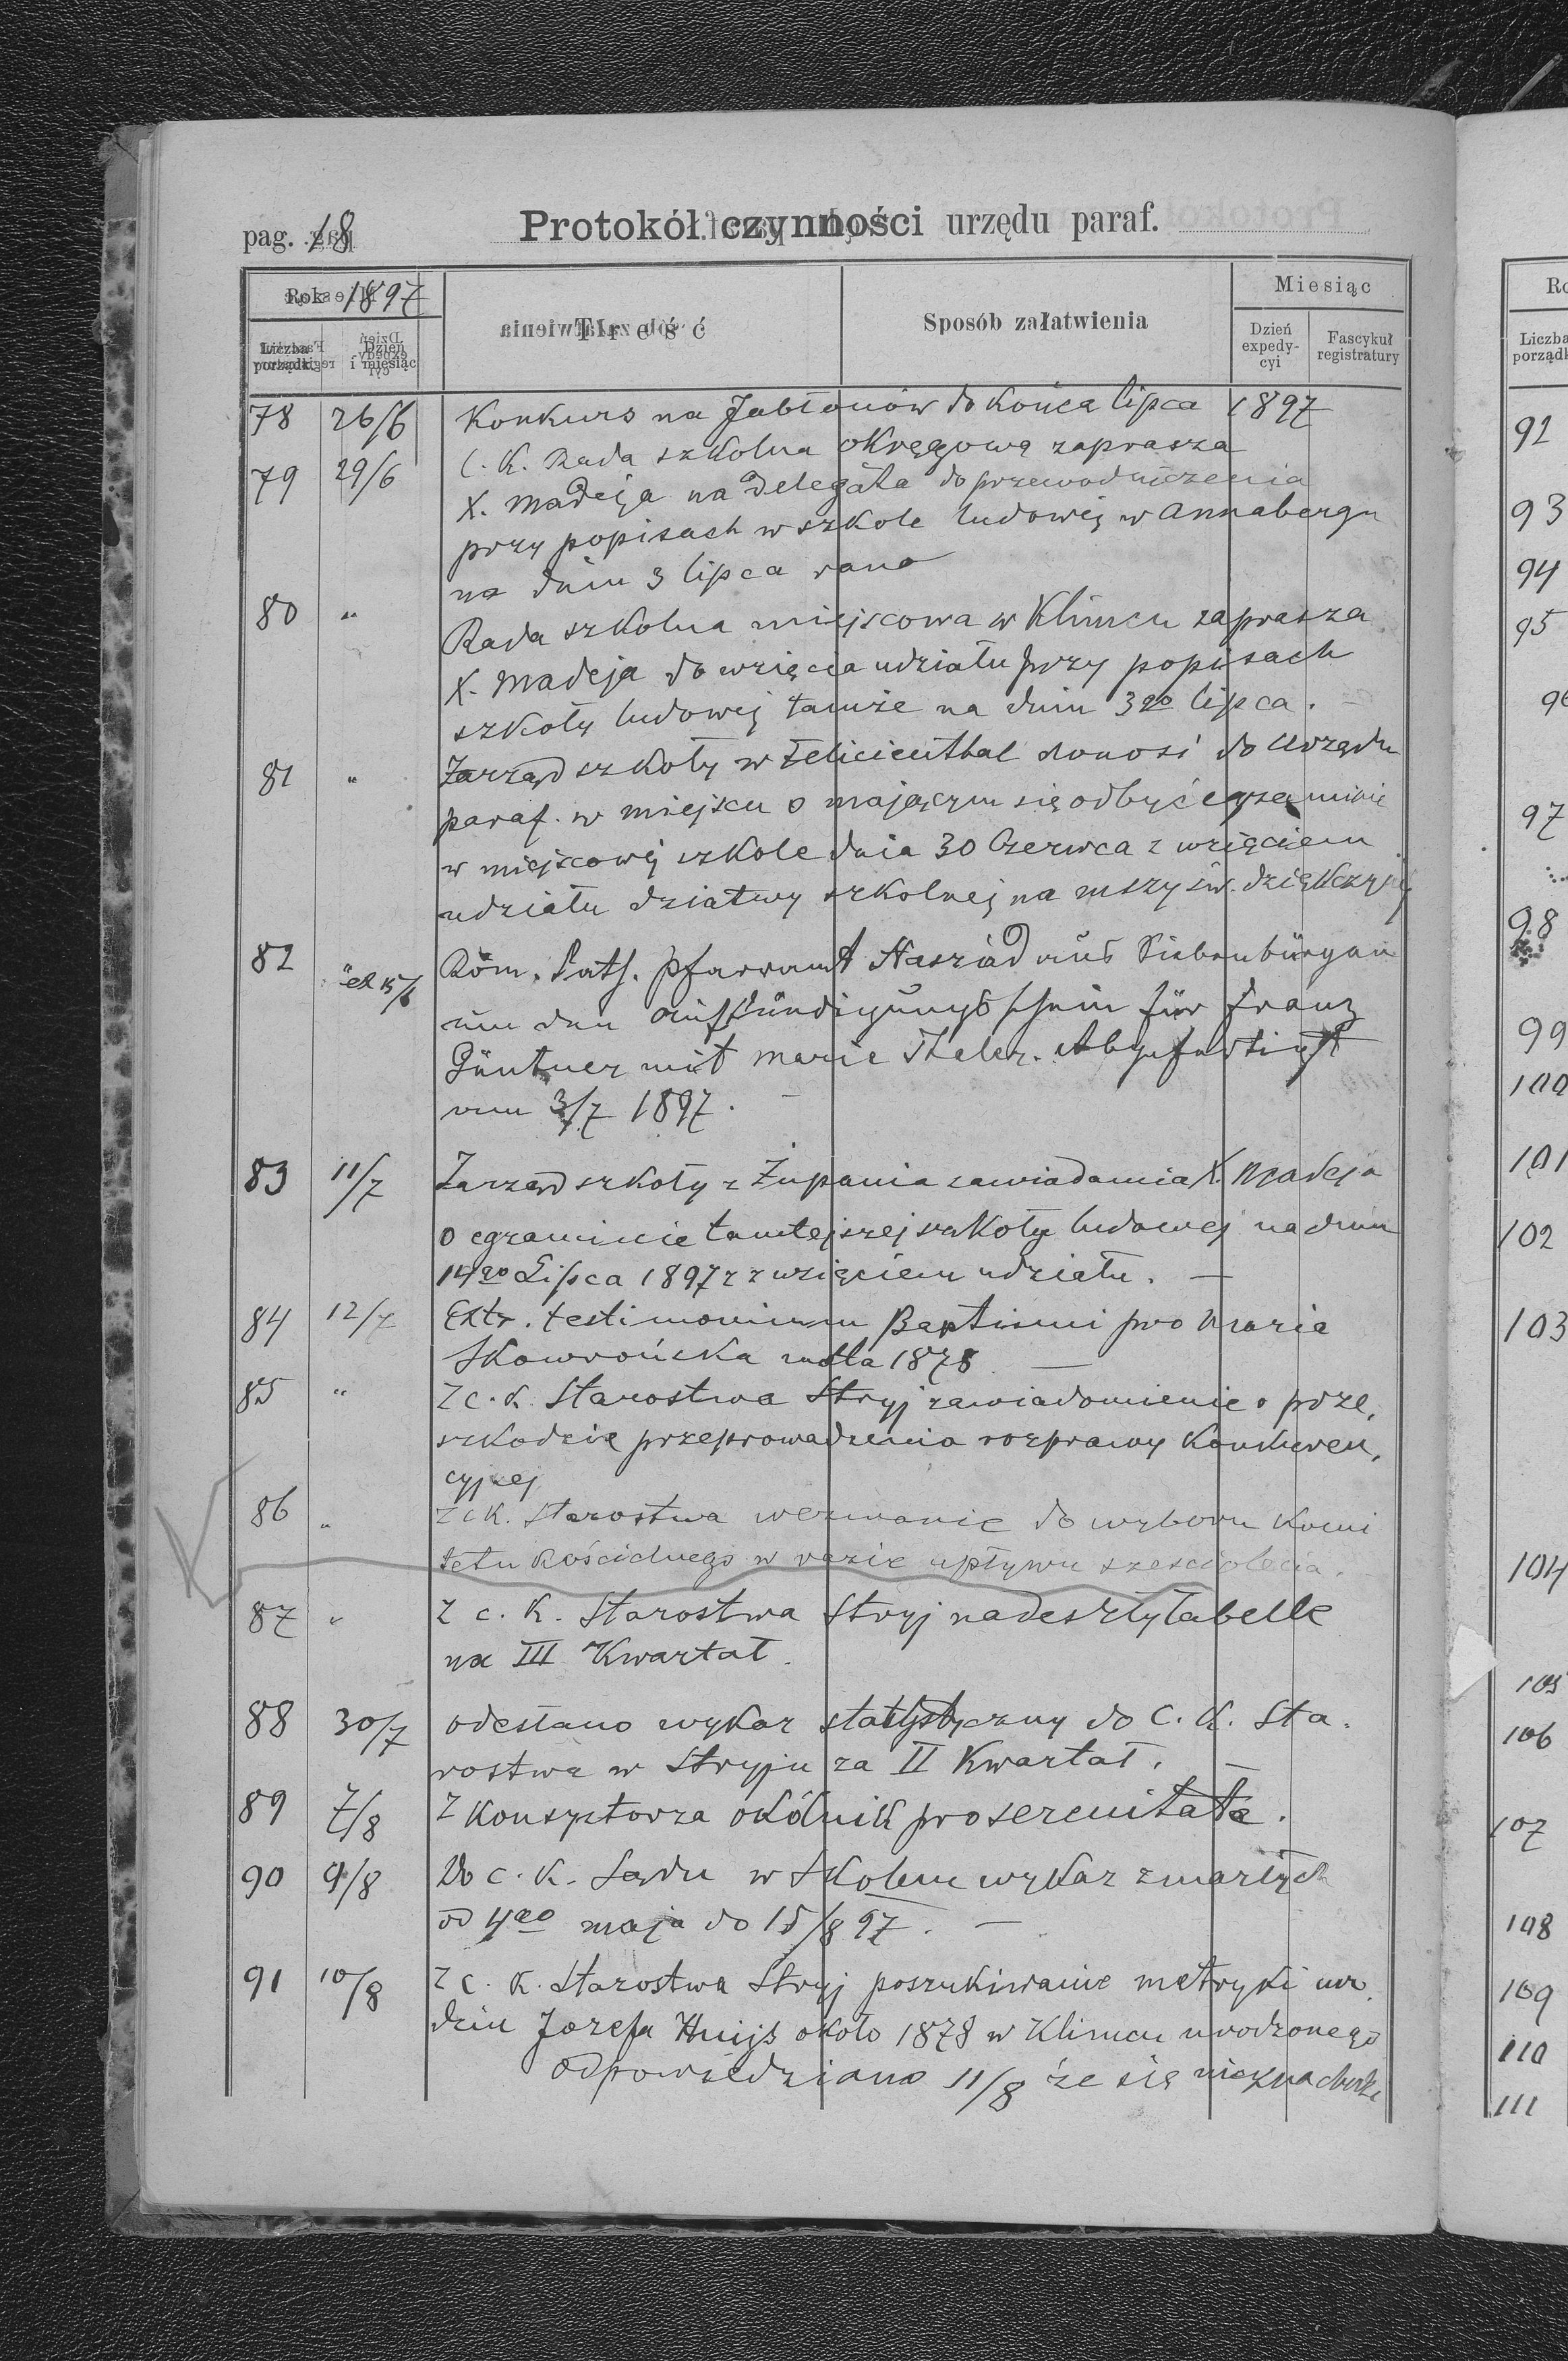 pag. 18 Protokół czynności urzędu paraf.
Rok 1897 Treść Sposób załatwienia Miesiąc
Liczba porządk. Dzień i miesiąc Dzień expedycyi Fascykuł registratury
78 26/6 Konkurs na Jabłonów do końca lipca 1897
79 29/6 C. K. Rada szkolna okręgowa zaprasza
X. Madeja na delegata do przewodniczenia
przy popisach w szkole ludowej w Annabergu
na dniu 3 lipca rano
80 " Rada szkolna miejscowa w Klimcu zaprasza
X. Madeja do wzięcia udziału przy popisach
szkoły ludowej tamże na dniu 3go lipca.
81 " Zarząd szkoły w Felicienthal donosi do Urzędu
paraf. w miejscu o mającym się odbyć egzaminie
w miejscowej szkole dnia 30 Czerwca z wzięciem
udziału dziatwy szkolnej na mszy św. dziękczynej
82 15/6 Röm. Kath. Pfarramt Naszód aus Siebenbürgen
um den Aufkündigungsschein für Franz
Güntner mit Marie Theler. Abgefertigt
am 3/7 1897. –
83 11/7 Zarząd szkoły z Żupania zawiadamia X. Madeja
o egzaminie tamtejszej szkoły ludowej na dniu
14go Lipca 1897 z wzięciem udziału. –
84 12/7 Extr. testimonium Baptismi pro Maria
Skowrońska 1878 –
85 " Z c. k. Starostwa Stryj zawiadomienie o prze,
szkodzie przeprowadzenia rozprawy konkuren,
cyjnej
86 " Z c k. Starostwa wezwanie do wyboru komi
tetu Kościelnego w razie upływu sześciolecia.
87 " Z c. k. Starostwa Stryj nadeszły tabelle
na III Kwartał.
88 30/7 odesłano wykaz statystyczny do C. K. Sta.
rostwa w Stryju za II Kwartał. –
89 7/8 Z Konsystorza okólnik pro serenitate.
90 9/8 Do c. k. Sądu w Skolem wykaz zmarłych
od 4go maja do 15/8 97. –
91 10/8 Z c. k. Starostwa Stryj poszukiwanie metryki uro.
dzin Józefa około 1878 w Klimcu urodzonego
odpowiedziano 11/8 że się nie znachodzi
Liczba porządk
92
93
94
95
96
97
98
99
100
101
102
103
104
105
106
107
108
109
110
111